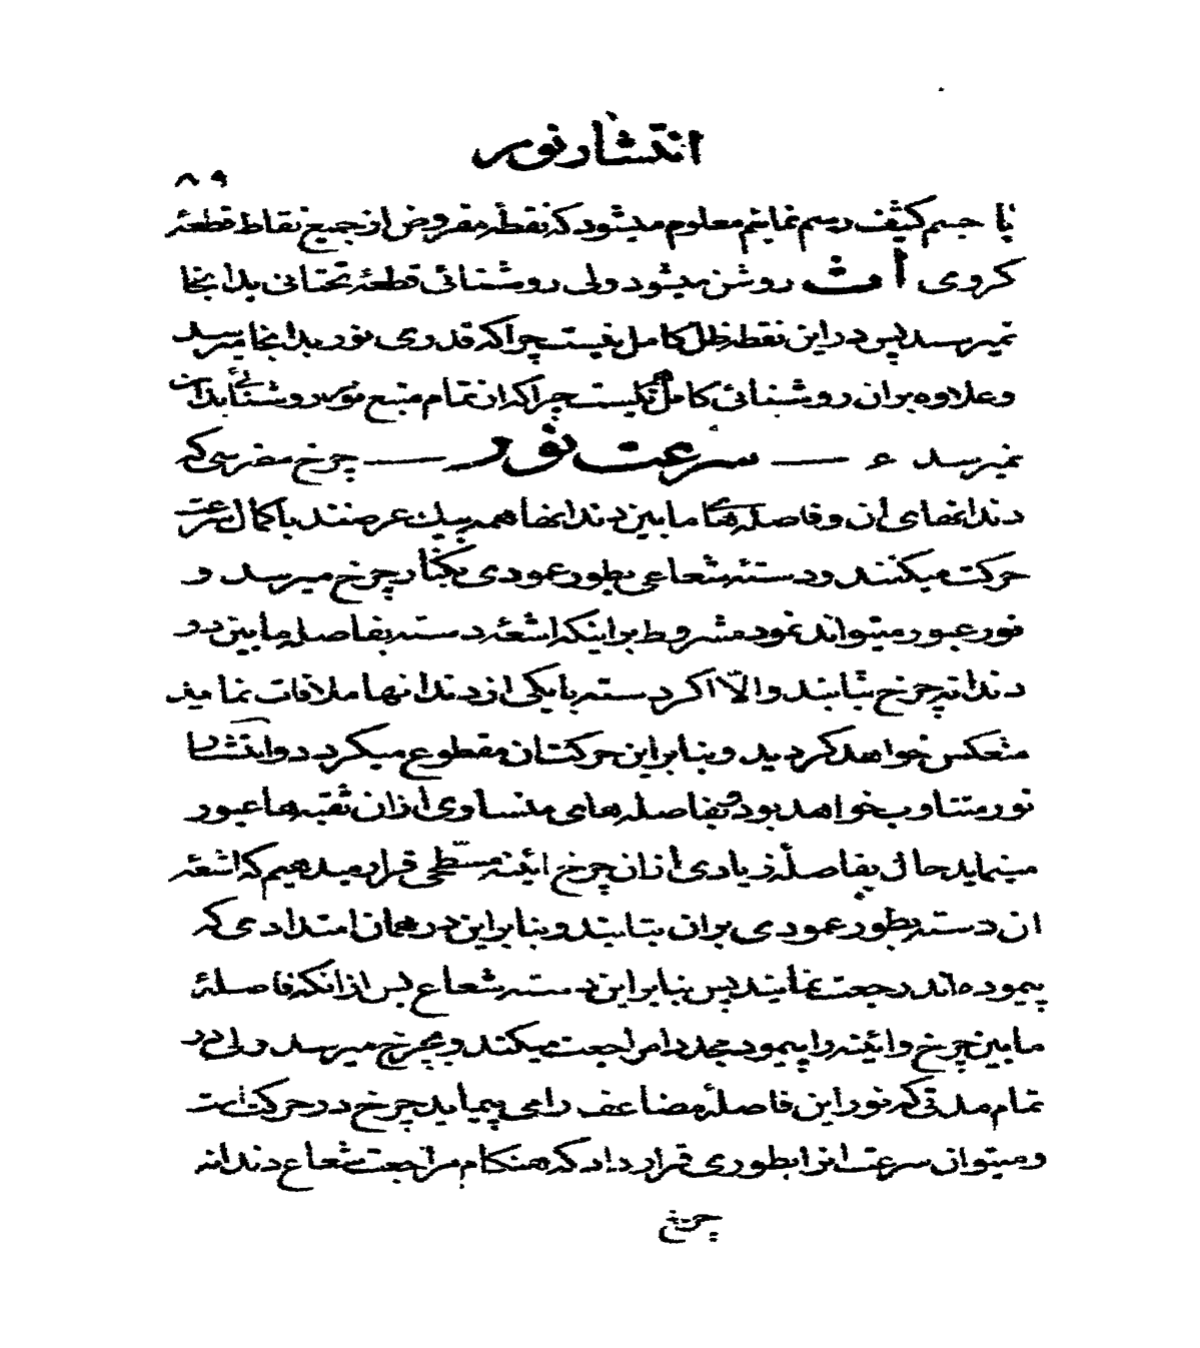 انتشار نور
۸۹
با جسم کثیف رسم نمایئم معلوم میشود که نقطهٔ مفروض از جمیع نقاط قطعهٔ
کروی أ ث روشن میشود ولی روشنائی قطعهٔ تحتانی بدانجا
نمیرسد پس در این نقطه ظل کامل نیست چرا که قدری نور بدانجا میرسد
و علاوه بر ان روشنائی کامل نیست چرا که از تمام منبع نور روشنائی بدان
نمیرسد ء — سرعت نور — چرخ مضرسی که
دندانهای آن و فاصله های مابین دندانها همه بیک عرضند با کمال سرعت
حرکت میکنند و دستهٔ شعاعی بطور عمودی بکنار چرخ میرسد و
نور عبور میتواند نمود مشروط بر اینکه اشعهٔ دسته بفاصله مابین دو
دندانه چرخ بتابند و الّا اکر دسته با یکی از دندانها ملاقات نماید
منعکس خواهد کردید و بنا بر این حرکتان مقطوع میکردد و انتشار
نور متناوب خواهد بود و بفاصله های متساوی أز ان ثقبه ها عبور
مینماید حال بفاصلهٔ زیادی أز ان چرخ ائینه مسطحی قرار میدهیم که اشعهٔ
ان دسته بطور عمودی بران بتابند و بنا بر این در همان امتدادی که
پیموده اند رجعت نمایند پس بنا بر این دسته شعاع پس از انکه فاصلهٔ
مابین چرخ و ائینه را پیمود مجددا مراجعت میکند و بچرخ میرسد ولی در
تمام مدتی که نور این فاصلهٔ مضاعف را می پیماید چرخ در حرکت است
و میتوان سرعت انرا بطوری قرار داد که هنکام مراجعت شعاع دندانه
چرخ